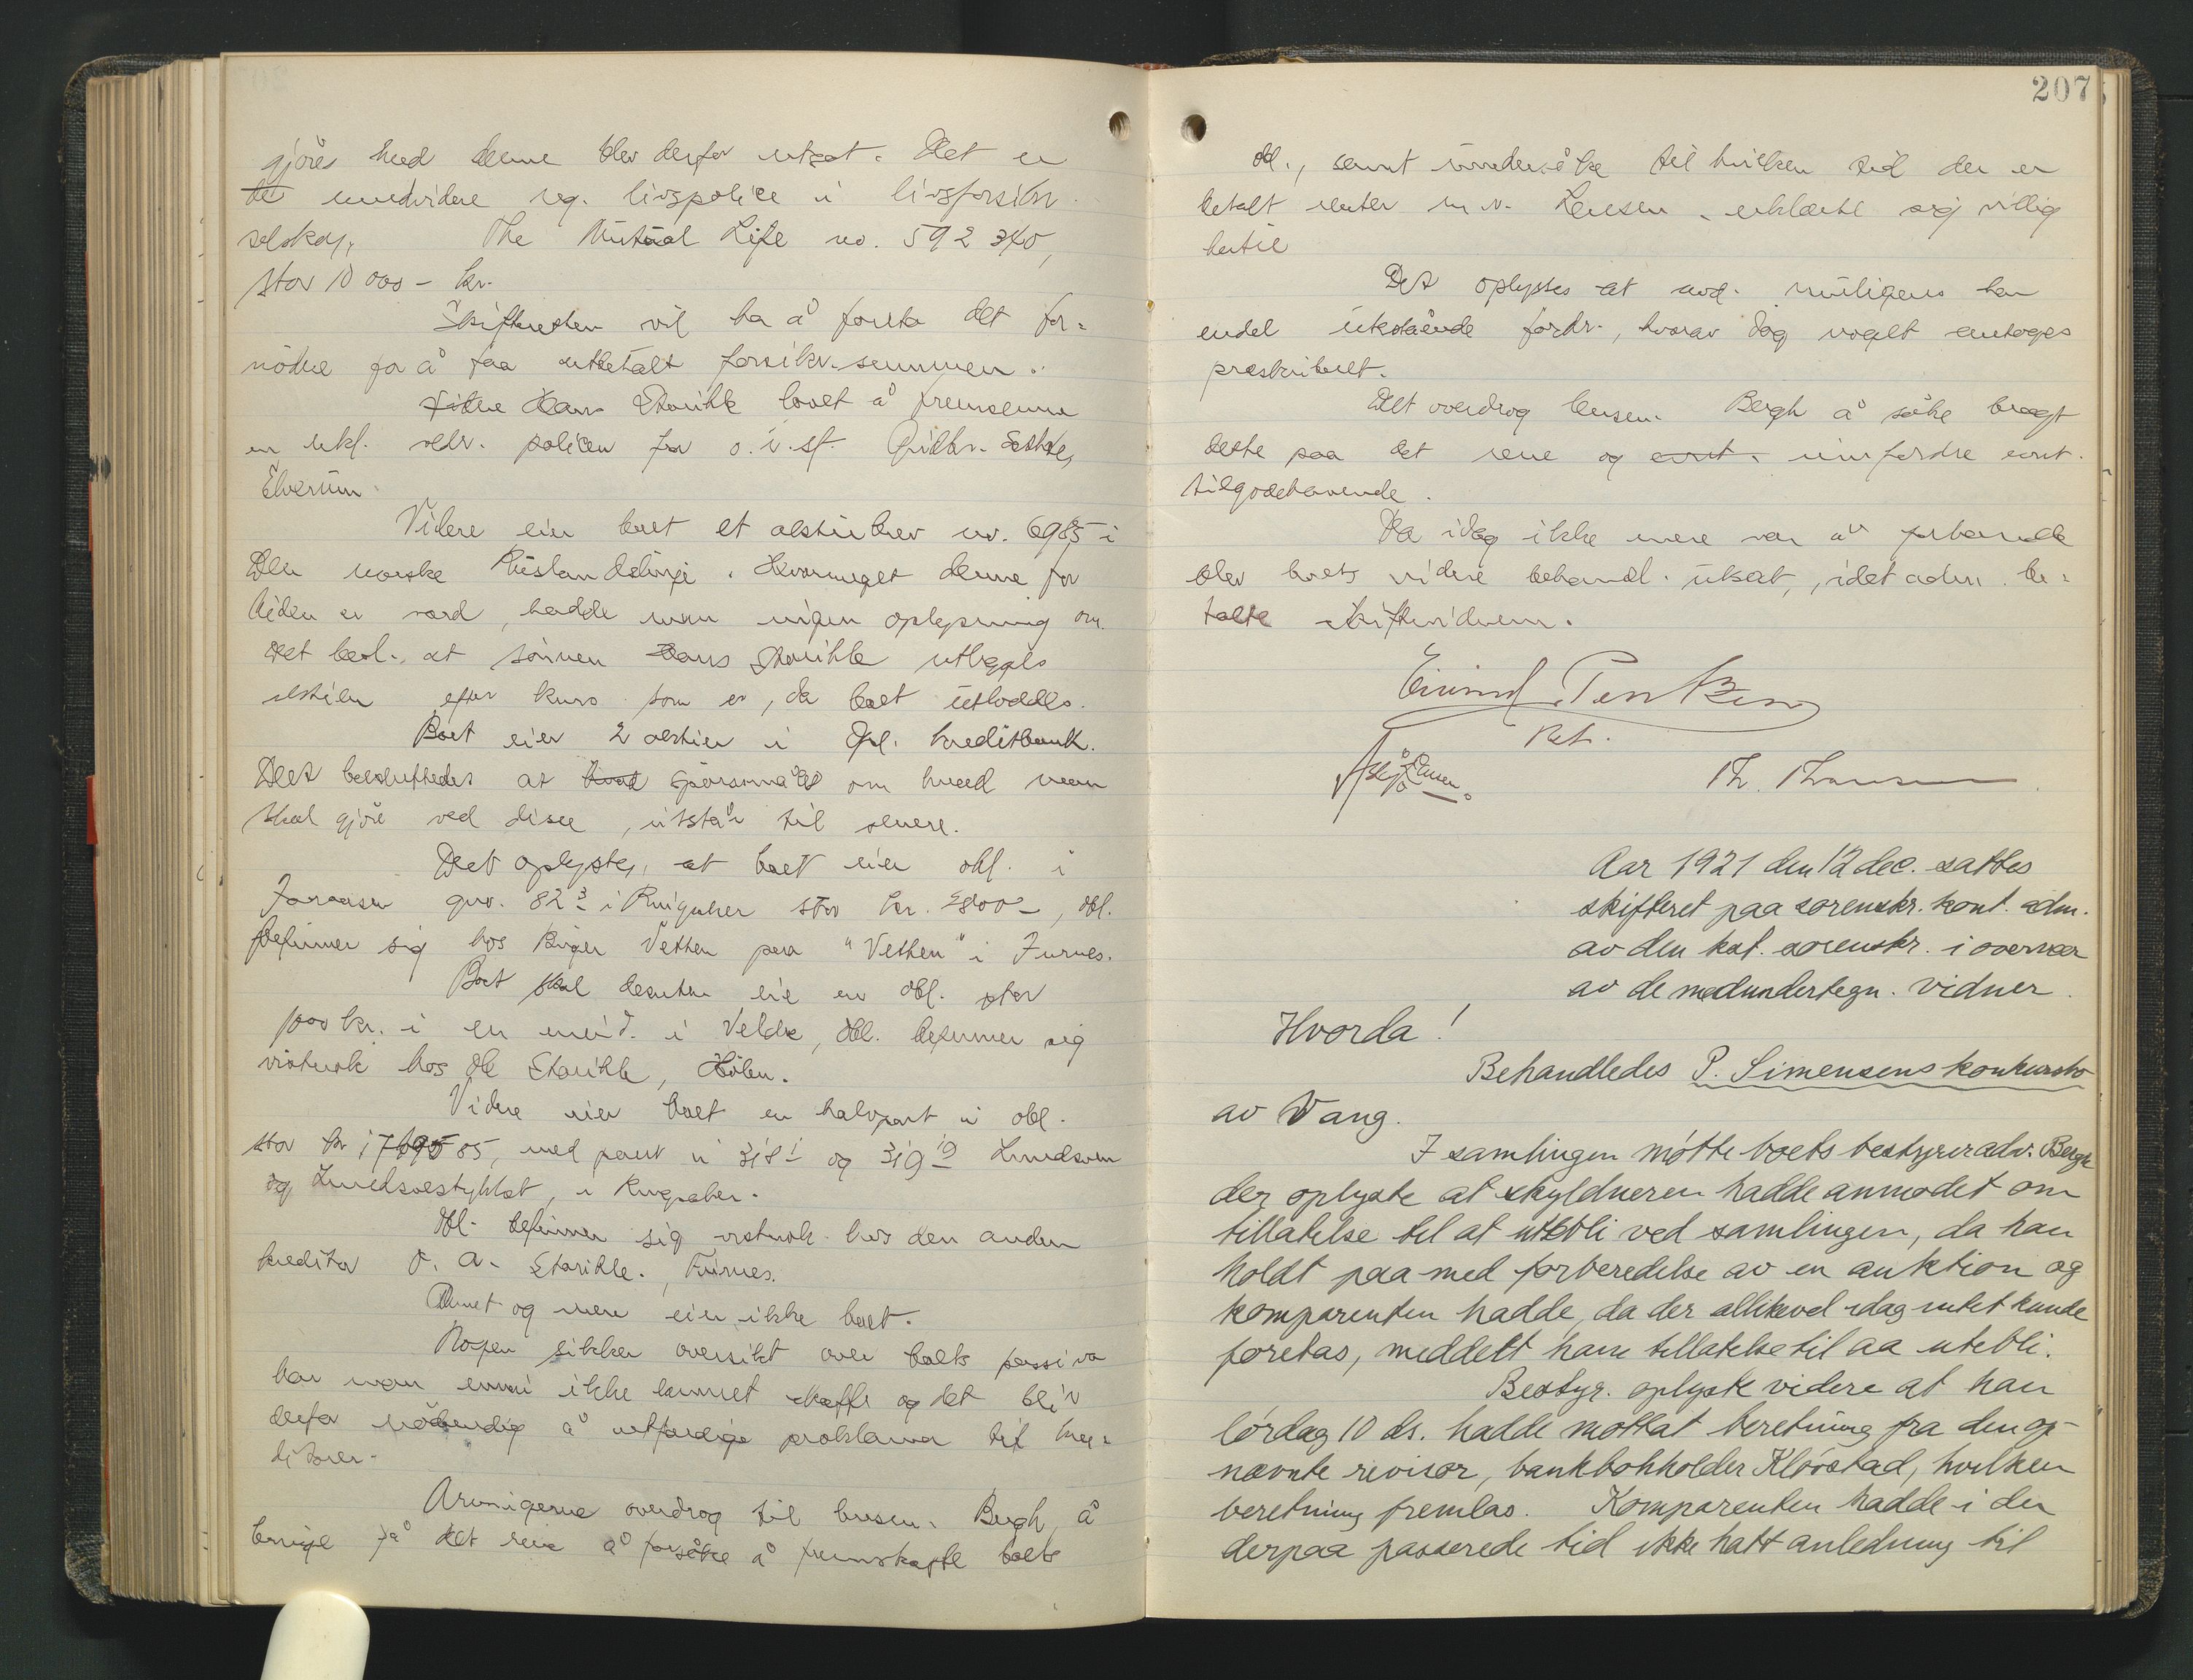 gjöre med denne blev derfor utsat. Det er
de umedvidere reg. livspolice i livsforsikr.
selskap, The Mutual Life no. 592 340,
stor 10 000 - kr.
Skifteretten vil ha å foreta det for=
nödne for å faa utbetalt forsikr.summen.
Hans Storihle lovet å fremsende
en erkl. vedr. policen fra o.r.sf.
Elverum.
Videre eier boet et aktiebrev nr. 6985 i
Den norske Ruslandslinje. Hvormeget denne for
tiden er værd, hadde man ingen oplysning om.
Det besl. at sönnen Hans Storihle utlægges
aktien efter kurs som er, da boet utloddes.
Boet eier 2 aktier i Opl. kreditbank.
Det besluttedes at hvad spörsmålet om hvad man
skal gjöre ved disse, utstår til senere.
Det oplystes, at boet eier obl. i
gno. 82³ i Ringsaker stor kr. 2800 -, obl.
befinner sig hos Birger Vetten paa "Vetten" i Furnes.
Boet skal desuten eie en obl. stor
kr. i en eiend. i Veldre, obl. befinner sig
vistnok hos Ole Storihle,
Videre eier boet en halvpart i obl.
stor kr. 85, med pant i 318¹ og 319¹⁹
og i Ringsaker.
Obl. befinner sig vistnok hos den anden
kreditor O. A. Storihle, Furnes.
Annet og mere eier ikke boet.
Nogen sikker oversikt over boets passiva
har man ennu ikke kunnet skaffe og det blir
derfor nödvendig å utfærdige proklama til kre=
ditorer.
Arvingerne overdrog til lensm. Bergh å
bringe på det rene å forsöke å fremskaffe boets
207
obl., samt undersöke til hvilken tid der er
betalt renter m.v. Lensm. erklærte sig villig
hertil
Det oplystes at avd. muligens har
endel utestående fordr., hvorav dog noget antages
præskriberet.
Det overdrog lensm. Bergh å söke bragt
dette paa det rene og evnt. innfordre evnt.
tilgodehavende.
Da idag ikke mere var å forhandle
blev boets videre behandl. utsat, idet adm. be=
talte skiftevidnern.
Eivind
Kst.
Th. Thansen
Aar 1921 den 12 dec. sattes
skifteret paa sorenskr. kont. adm.
av den kst. sorenskr. i overvær
av de medundertegn. vidner.
Hvorda!
Behandledes P. Simensens konkursbo
av Vang.
I samlingen møtte boets bestyrer adv. Bergh
der oplyste at skyldneren hadde anmodet om
tillatelse til at utebli ved samlingen, da han
holdt paa med forberedelse av en auktion og
komparenten hadde, da der allikevel idag intet kunde
foretas, meddelt ham tillatelse til aa utebli.
Bestyr. oplyste videre at han
lørdag 10 ds. hadde mottat beretning fra den op-
nævnte revisor, bankbokholder Kløvstad, hvilken
beretning fremlas. Komparenten hadde i den
derpaa passerede tid ikke hatt anledning til